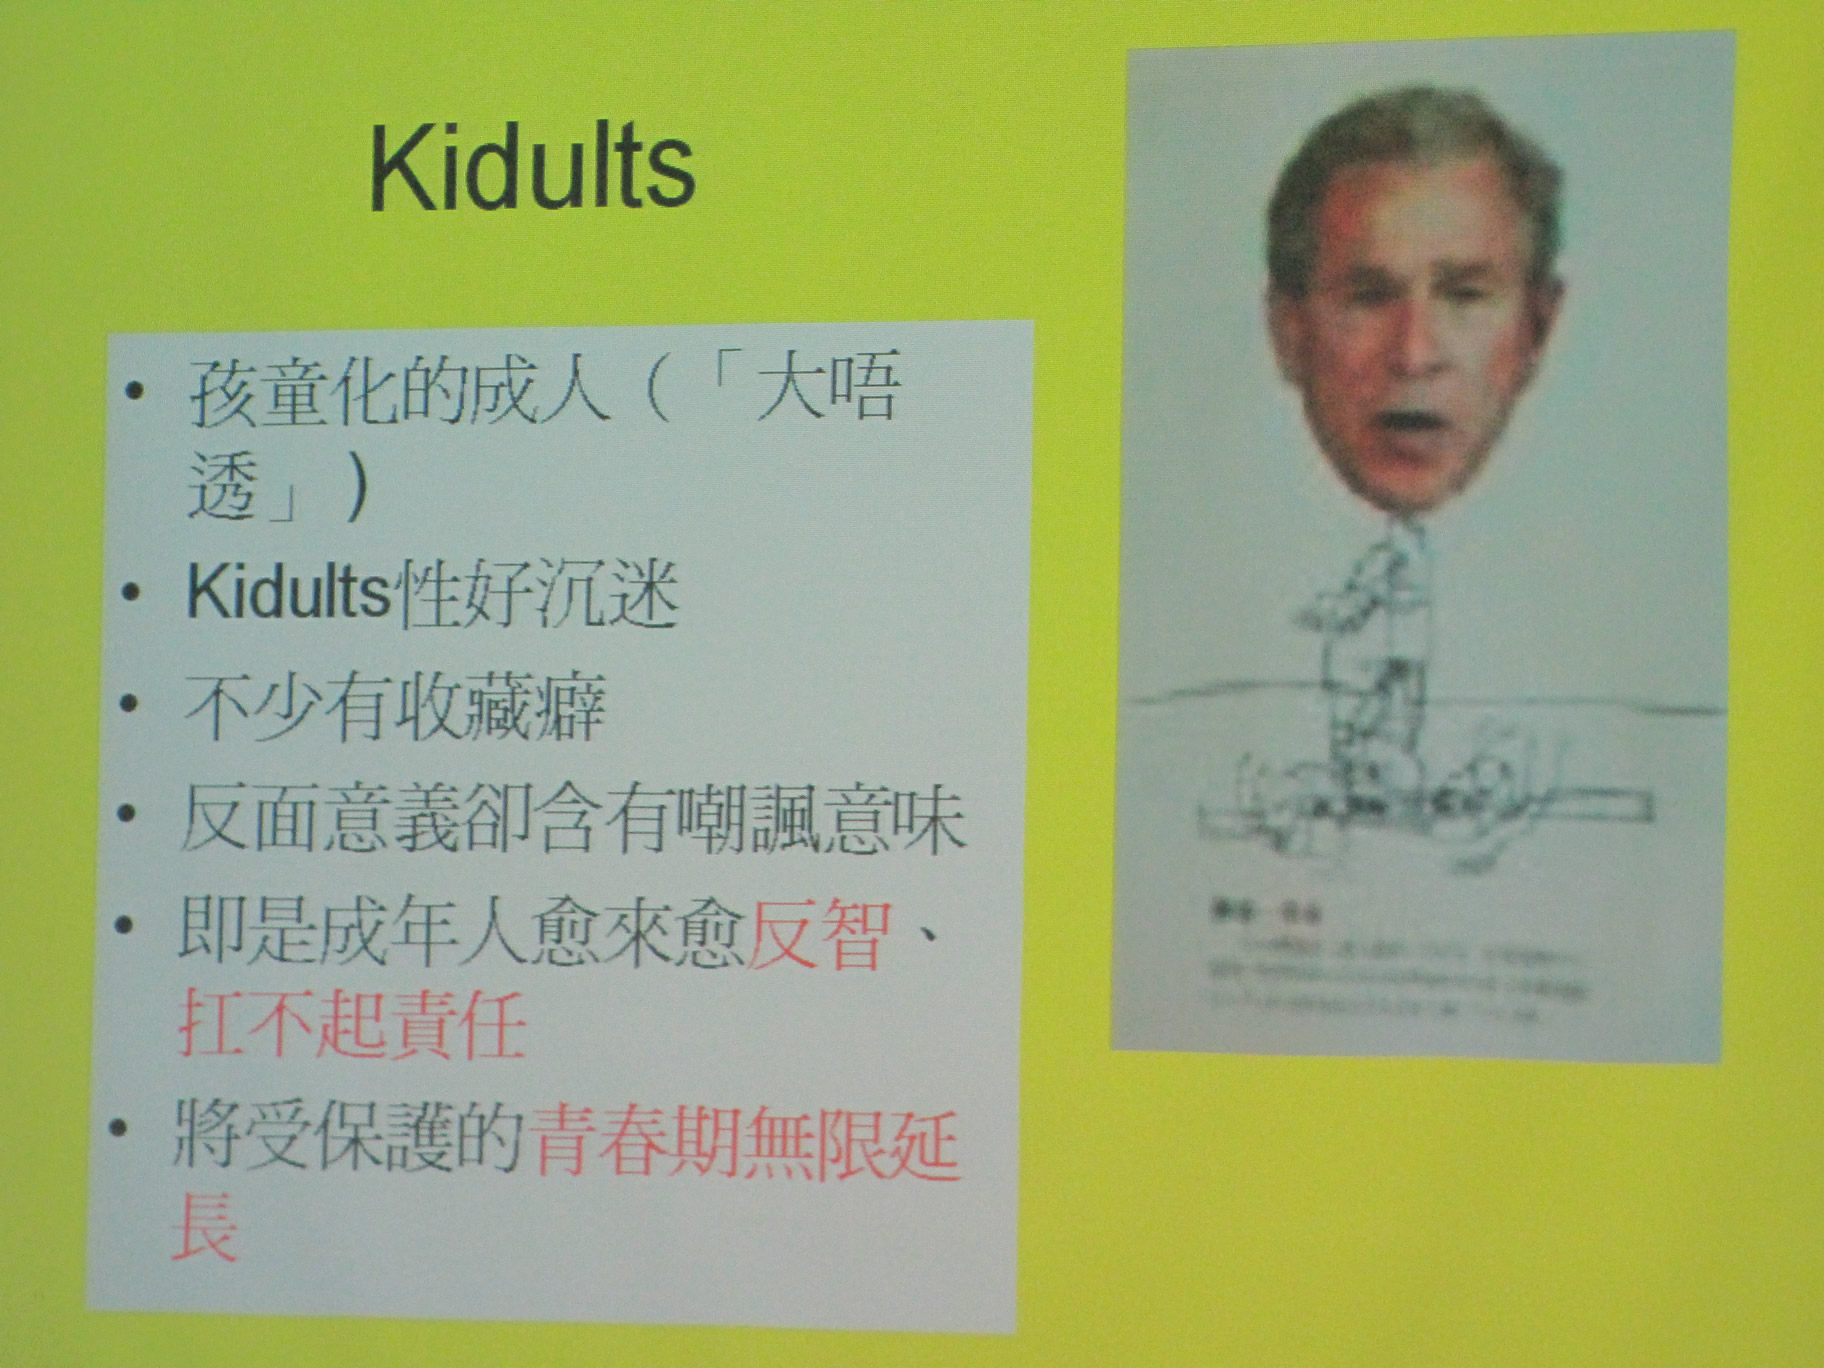 Kidults
• 孩童化的成人（「大唔
透」)
• Kidults性好沉迷
• 不少有收藏癖
• 反面意義卻含有嘲諷意味
• 即是成年人愈來愈反智、
扛不起責任
• 將受保護的青春期無限延
長